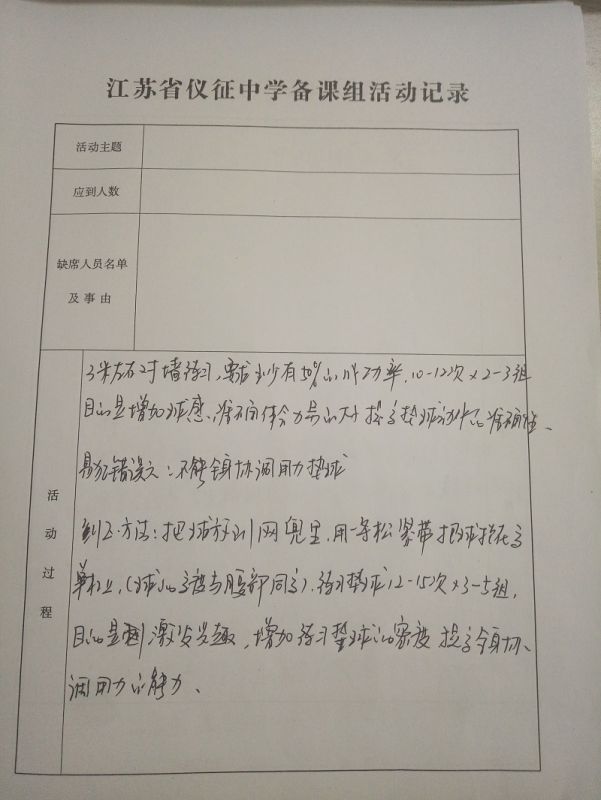 江苏省仪征中学备课组活动记录
活动主题
应到人数
缺席人员名单
及事由
活动过程
3米左右对墙练习,要求至少有50%的成功率,10-12次×2-3组
目的是增加球感、准确体会力量的大小提高垫球动作的准确性、
易犯错误之:不能全身协调用力垫球
纠正方法:把球放到网兜里,用一导松紧带把球拴在高
单杠上,(球的高度与腰部同高),练习垫球12-15次×3-5组,
目的是激发兴趣,增加练习垫球的密度提高全身协、
调用力的能力、